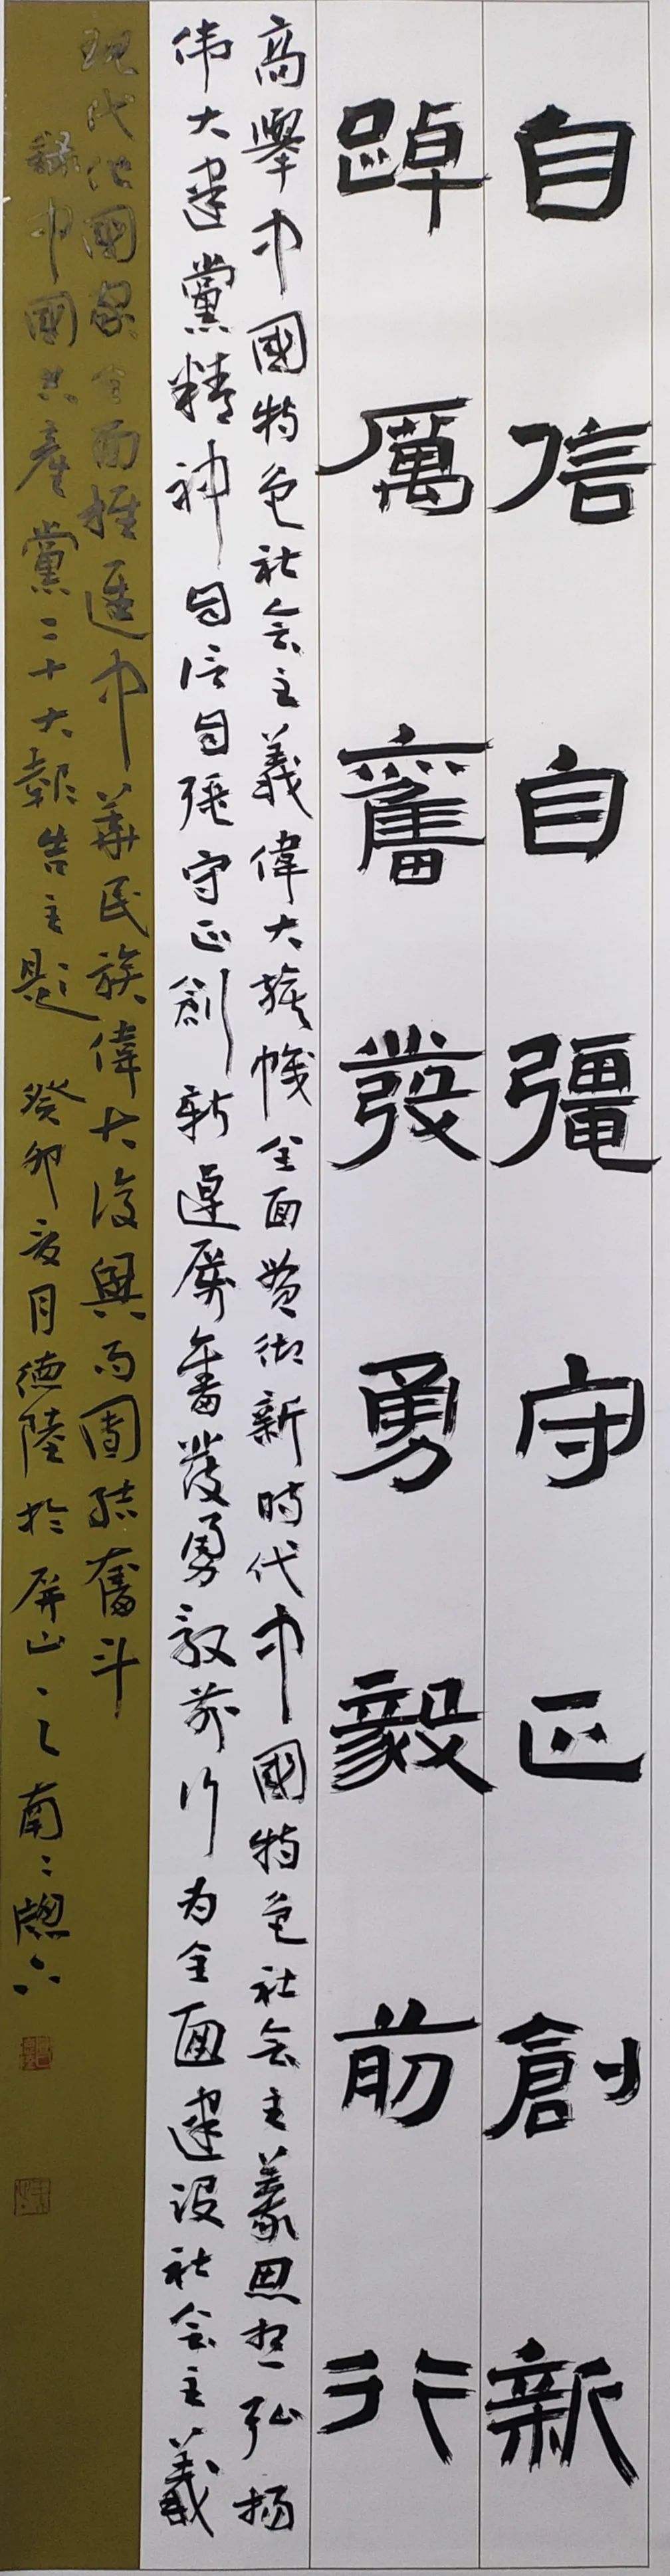 自信自彊守正創新
踔厲奮發勇毅前行
高舉中國特色社会主義偉大旗幟全面贯彻新時代中國特色社会主義思想弘扬
伟大建黨精神自信自强守正創新踔厲奮發勇毅前行为全面建设社会主義
现代化國家全面推進中華民族偉大復興而团结奮斗
錄中國共產黨二十大報告主題 癸卯夏月德陸於屏山之南